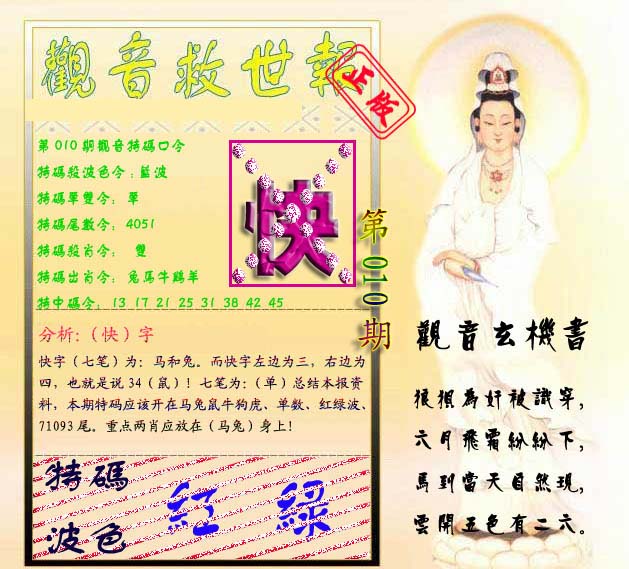 觀音救世報
正版
第010期觀音特碼口令
特碼殺波色令:藍波
特碼單雙令: 單
特碼尾數令: 4051
特碼殺肖令: 雙
特碼出肖令: 兔馬牛鷄羊
特中碼令: 13 17 21 25 31 38 42 45
快
第010期
分析:（快）字
快字（七笔）为：马和兔。而快字左边为三，右边为
四，也就是说34（鼠）！七笔为：（单）总结本报资
料，本期特码应该开在马兔鼠牛狗虎、单数、红绿波、
71093尾。重点两肖应放在（马兔）身上！
特碼
波色
紅 綠
觀音玄機書
狼狽為奸被識穿，
六月飛霜紛紛下，
馬到當天自然現，
雲開五色有二六。